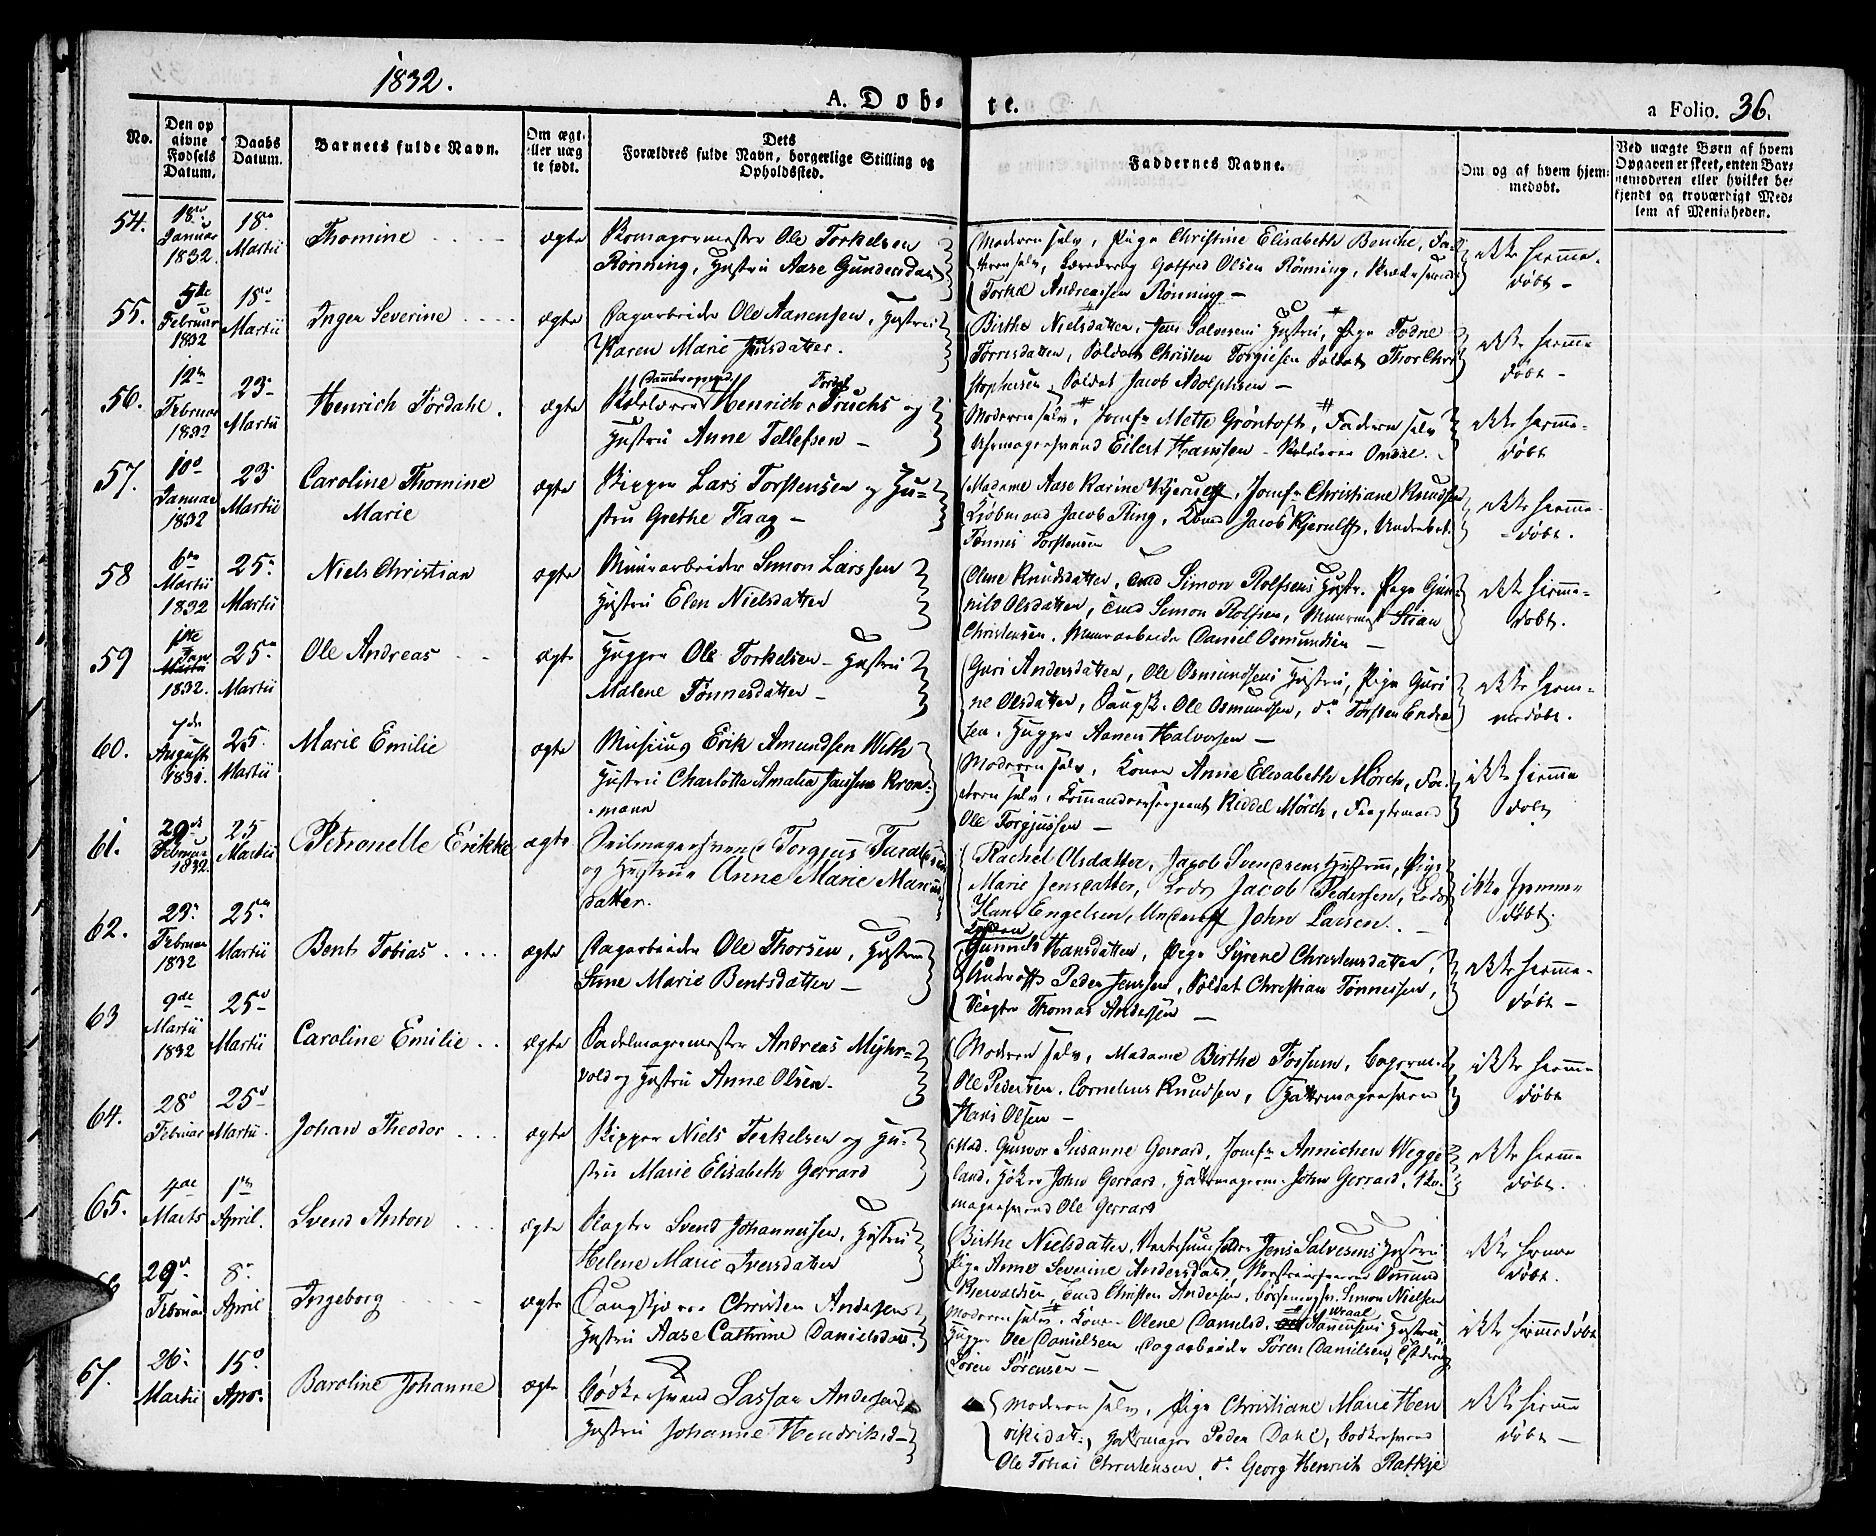 1832.
A. Döb-
te.
a Folio. 36.
No.
Den op
givne
Födsels
Datum.
Daabs
Datum.
Barnets fulde Navn.
Om ægt.
eller uæg
te født.
Dets
Forældres fulde Navn, borgerlige Stilling og
Opholdssted.
Faddernes Navne.
Om og af hvem hjem-
medøbt.
Ved uægte Børn af hvem
Opgaven er skeet, enten Bar-
nemoderen eller hvilket be-
kjendt og troværdigt Med-
lem af Menigheden.
54.
18de
Januar
1832.
18de
Martii
Thomine
ægte
Skomagermester Ole Torkelsen
Rönning, Hustru Aase Gundersdat
Moderen selv, Pige Christine Elisabeth Bonche, Fa-
deren selv, Gotfred Olsen Rönning,
Torkel Andreassen Rönning —
ikke hiemme-
döbt —
55.
5te
Februar
1832
18de
Martii
Inger Severine
ægte
Dagarbeider Ole Aanensen, Hustru
Karen Marie Jensdatter.
Birthe Nielsdatter, Jens Salvesens Hustru, Pige Todne
Torresdatter, Soldat Christen Torgiesen Soldat Thor Chri
stophersen, Soldat Jacob Adolphsen —
ikke hiemme
döbt —
56.
12te
Februar
1832
23de
Martii
Henrich Tordahl.
ægte
Dannebrogsmand Tordal
Skolelærer Henrich Fuchs og
Hustru Anne Tellefsen —
Moderen selv, Jomfr Mette Gröntoft, Faderen selv
Uhrmagersvend Eilert Hanssen — Omdal.
ikke hiemme-
döbt
57.
10de
Januar
1832
23
Martii
Caroline Thomine
Marie
ægte
Skipper Lars Torstensen og Hu-
stru Grethe Faag —
Madame Aase Karine Kjerulff, Jomfr Christiane Knudsen
Kjöbmand Jacob Ring, Jacob Kjerulff,
Tönnes Torstensen
ikke hiemme-
döbt.
58
6te
Martii
1832
25.
Martii
Niels Christian
ægte
Muurarbeider Simon Larssen
Hustru Elen Nielsdatter
Olene Knudsdatter, Simon Rolfsens Hustr. Pige Gun-
nild Olsdatter, Simon Rolfsen, Muurmest Stian
Christensen, Muurarbeider Daniel Osmundsen —
ikke hiemme-
döbt.
59
1ste
Jan
Martii
1832.
25de
Martii
Ole Andreas
ægte
Hugger Ole Torkelsen — Hustru
Malene Tönnesdatter —
Guri Andersdatter, Ole Osmundsens Hustru, Pige Guri
ne Olsdatter, Ole Osmundsen, do Torsten Endre
sen, Hugger Aanen Halvorsen —
ikke hiem-
medöbt.
60.
7de
August
1831.
25.
Martii
Marie Emilie
ægte
Musicus Erik Amundsen With
Hustru Charlotte Amalia Janssen Kron-
mann
Moderen selv, Konen Anne Elisabeth Mörch, Fa-
deren selv, Commandeersergeant Riddel Mörch, Fragtemand
Ole Torgjussen —
ikke hiemme
döbt
61.
29de
Februar
1832.
25
Martii
Petronelle Erikke
ægte
Seilmagersvend Torgius Taraldsen
og Hustrue Anne Marie Marcus
datter.
Rachel Olsdatter, Jacob Svendsens Hustrue, Pige
Marie Jensdatter, Lods Jacob Pedersen, Lods
Hans Engelsen, Underoff John Larsen.
ikke hiemme
döbt.
62.
23de
Februar
1832
25de
Martii
Bent Tobias
ægte
Dagarbeider Ole Thorsen, Hustru
Sine Marie Bentsdatter —
Gunnild Hansdatter, Pige Syrene Christensdatter,
Underoff Peder Jenssen, Soldat Christian Tönnessen,
Slagter Thomas Andersen —
ikke hiemme-
döbt —
63
9de
Martii
1832
25de
Martii
Caroline Emilie
ægte
Sadelmagermester Andreas Myhr-
vold og Hustru Anne Olsen —
Moderen selv, Madame Birthe Fossum, Bagerm.
Ole Pedersen, Cornelius Knudsen, Hattemagersvend
Hans Olsen —
ikke hiemme
döbt
64.
28de
Februar
25de
Martii
Johan Theodor
ægte
Skipper Niels Terkelsen og Hu-
stru Marie Elisabeth Gerrard
Mad. Gunvor Susanne Gerrard, Jomfr Annichen Wegge
land, Höker John Gerrard, Hattemagerm. John Gerrard,
magersvend Ole Gerrard
ikke hiemme
döbt.
65.
4de
Marts
1ste
April.
Svend Anton
ægte
Slagter Svend Johannessen, Hustru
Helene Marie Iversdatter
Birthe Nielsdatter, Jens Salvesens Hustru
Pige Anne Severine Andersdat,
Christen Andersen, Simon Nielsen
ikke hiemme
döbt.
29de
Februar
8de
April
Ingeborg
ægte
Christen Andersen
Hustru Aase Cathrine Danielsdatt.
Moderen selv, Konen Olene Danielsd. Aanensens Hustru,
Hugger Ole Danielsen, Dagarbeider Sören Danielsen,
Sören Sörensen —
ikke hiemmedöbt
67.
26de
Martii
15de
Apr.
Baroline Johanne
ægte
Bödkersvend Lassan Andersen
Hustru Johanne Hendriksd —
Moderen selv, Pige Christiane Marie Hen
riksdatt., Hattemager Peder Dahl, Bödkersvend
Ole Tobias Christensen, do Georg Henrich Ratkje
ikke hiemme
döbt —